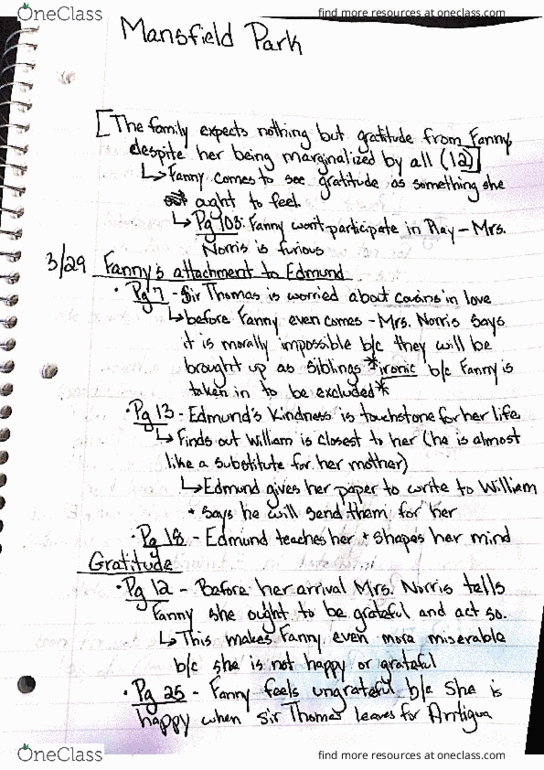 OneClass
find more resources at oneclass.com
Mansfield Park
[The family expects nothing but gratitude from Fanny
despite her being marginalized by all (12)]
↳ Fanny comes to see gratitude as something she
ought to feel.
↳ Pg 103: Fanny won't participate in Play - Mrs.
Norris is furious
3/29 Fanny's attachment to Edmund
• Pg 7 - Sir Thomas is worried about cousins in love
↳ before Fanny even comes - Mrs. Norris says
it is morally impossible b/c they will be
brought up as siblings *ironic b/c Fanny is
taken in to be excluded*
• Pg 13 - Edmund's kindness is touchstone for her life
↳ Finds out William is closest to her (he is almost
like a substitute for her mother)
↳ Edmund gives her paper to write to William
+ says he will send them for her
• Pg 18 - Edmund teaches her + shapes her mind
Gratitude
• Pg 12 - Before her arrival Mrs. Norris tells
Fanny she ought to be grateful and act so.
↳ This makes Fanny even more miserable
b/c she is not happy or grateful
• Pg 25 - Fanny feels ungrateful b/c She is
happy when Sir Thomas leaves for Antigua
OneClass
find more resources at oneclass.com